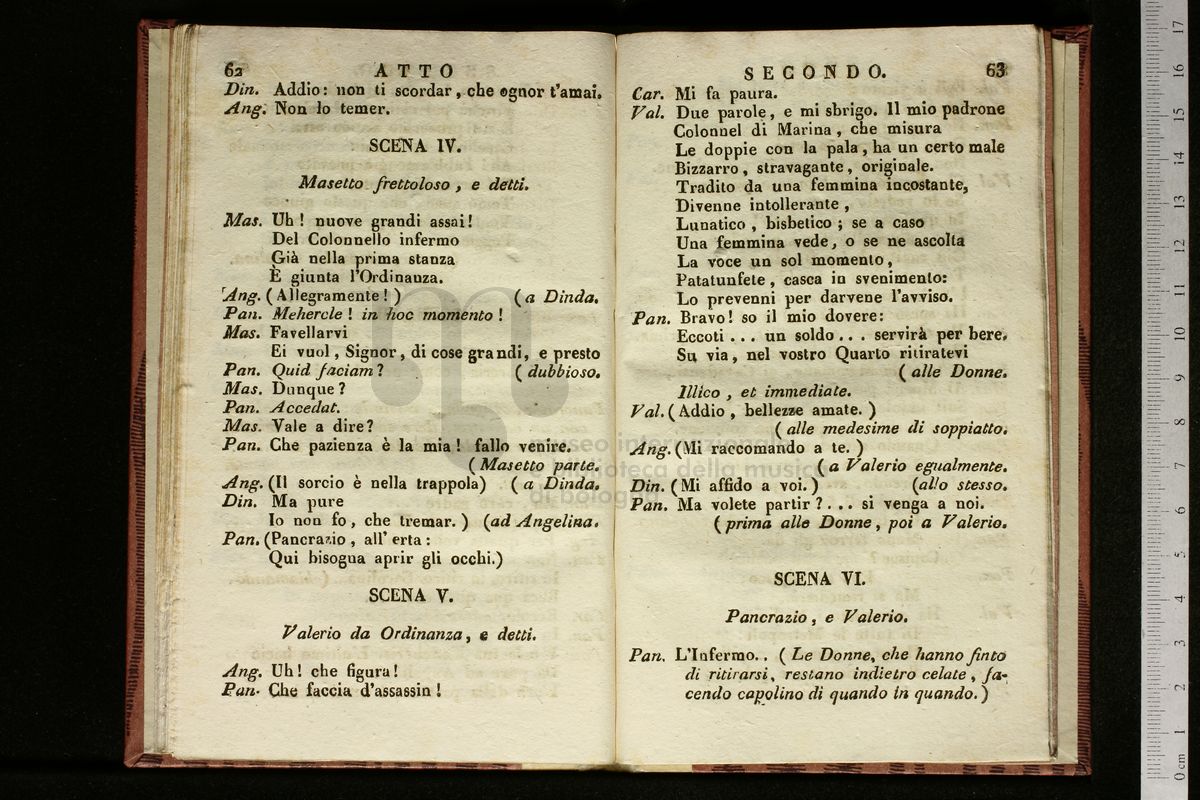 62 ATTO
Din. Addio: non ti scordar, che ognor t'amai.
Ang. Non lo temer.
SCENA IV.
Masetto frettoloso, e detti.
Mas. Uh! nuove grandi assai!
Del Colonnello infermo
Già nella prima stanza
È giunta l'Ordinanza.
Ang. (Allegramente!) (a Dinda.
Pan. Mehercle! in hoc momento!
Mas. Favellarvi
Ei vuol, Signor, di cose grandi, e presto
Pan. Quid faciam? (dubbioso.
Mas. Dunque?
Pan. Accedat.
Mas. Vale a dire?
Pan. Che pazienza è la mia! fallo venire.
(Masetto parte.
Ang. (Il sorcio è nella trappola) (a Dinda.
Din. Ma pure
Io non fo, che tremar.) (ad Angelina.
Pan. (Pancrazio, all'erta:
Qui bisogna aprir gli occhi.)
SCENA V.
Valerio da Ordinanza, e detti.
Ang. Uh! che figura!
Pan. Che faccia d'assassin!
SECONDO. 63
Car. Mi fa paura.
Val. Due parole, e mi sbrigo. Il mio padrone
Colonnel di Marina, che misura
Le doppie con la pala, ha un certo male
Bizzarro, stravagante, originale.
Tradito da una femmina incostante,
Divenne intollerante,
Lunatico, bisbetico; se a caso
Una femmina vede, o se ne ascolta
La voce un sol momento,
Patatunfete, casca in svenimento:
Lo prevenni per darvene l'avviso.
Pan. Bravo! so il mio dovere:
Eccoti... un soldo... servirà per bere.
Su via, nel vostro Quarto ritiratevi
(alle Donne.
Illico, et immediate.
Val. (Addio, bellezze amate.)
(alle medesime di soppiatto.
Ang. (Mi raccomando a te.)
(a Valerio egualmente.
Din. (Mi affido a voi.) (allo stesso.
Pan. Ma volete partir?... si venga a noi.
(prima alle Donne, poi a Valerio.
SCENA VI.
Pancrazio, e Valerio.
Pan. L'Infermo.. (Le Donne, che hanno finto
di ritirarsi, restano indietro celate, fa-
cendo capolino di quando in quando.)
museo internazionale
e biblioteca della musica
di bologna
0 cm 1 2 3 4 5 6 7 8 9 10 11 12 13 14 15 16 17